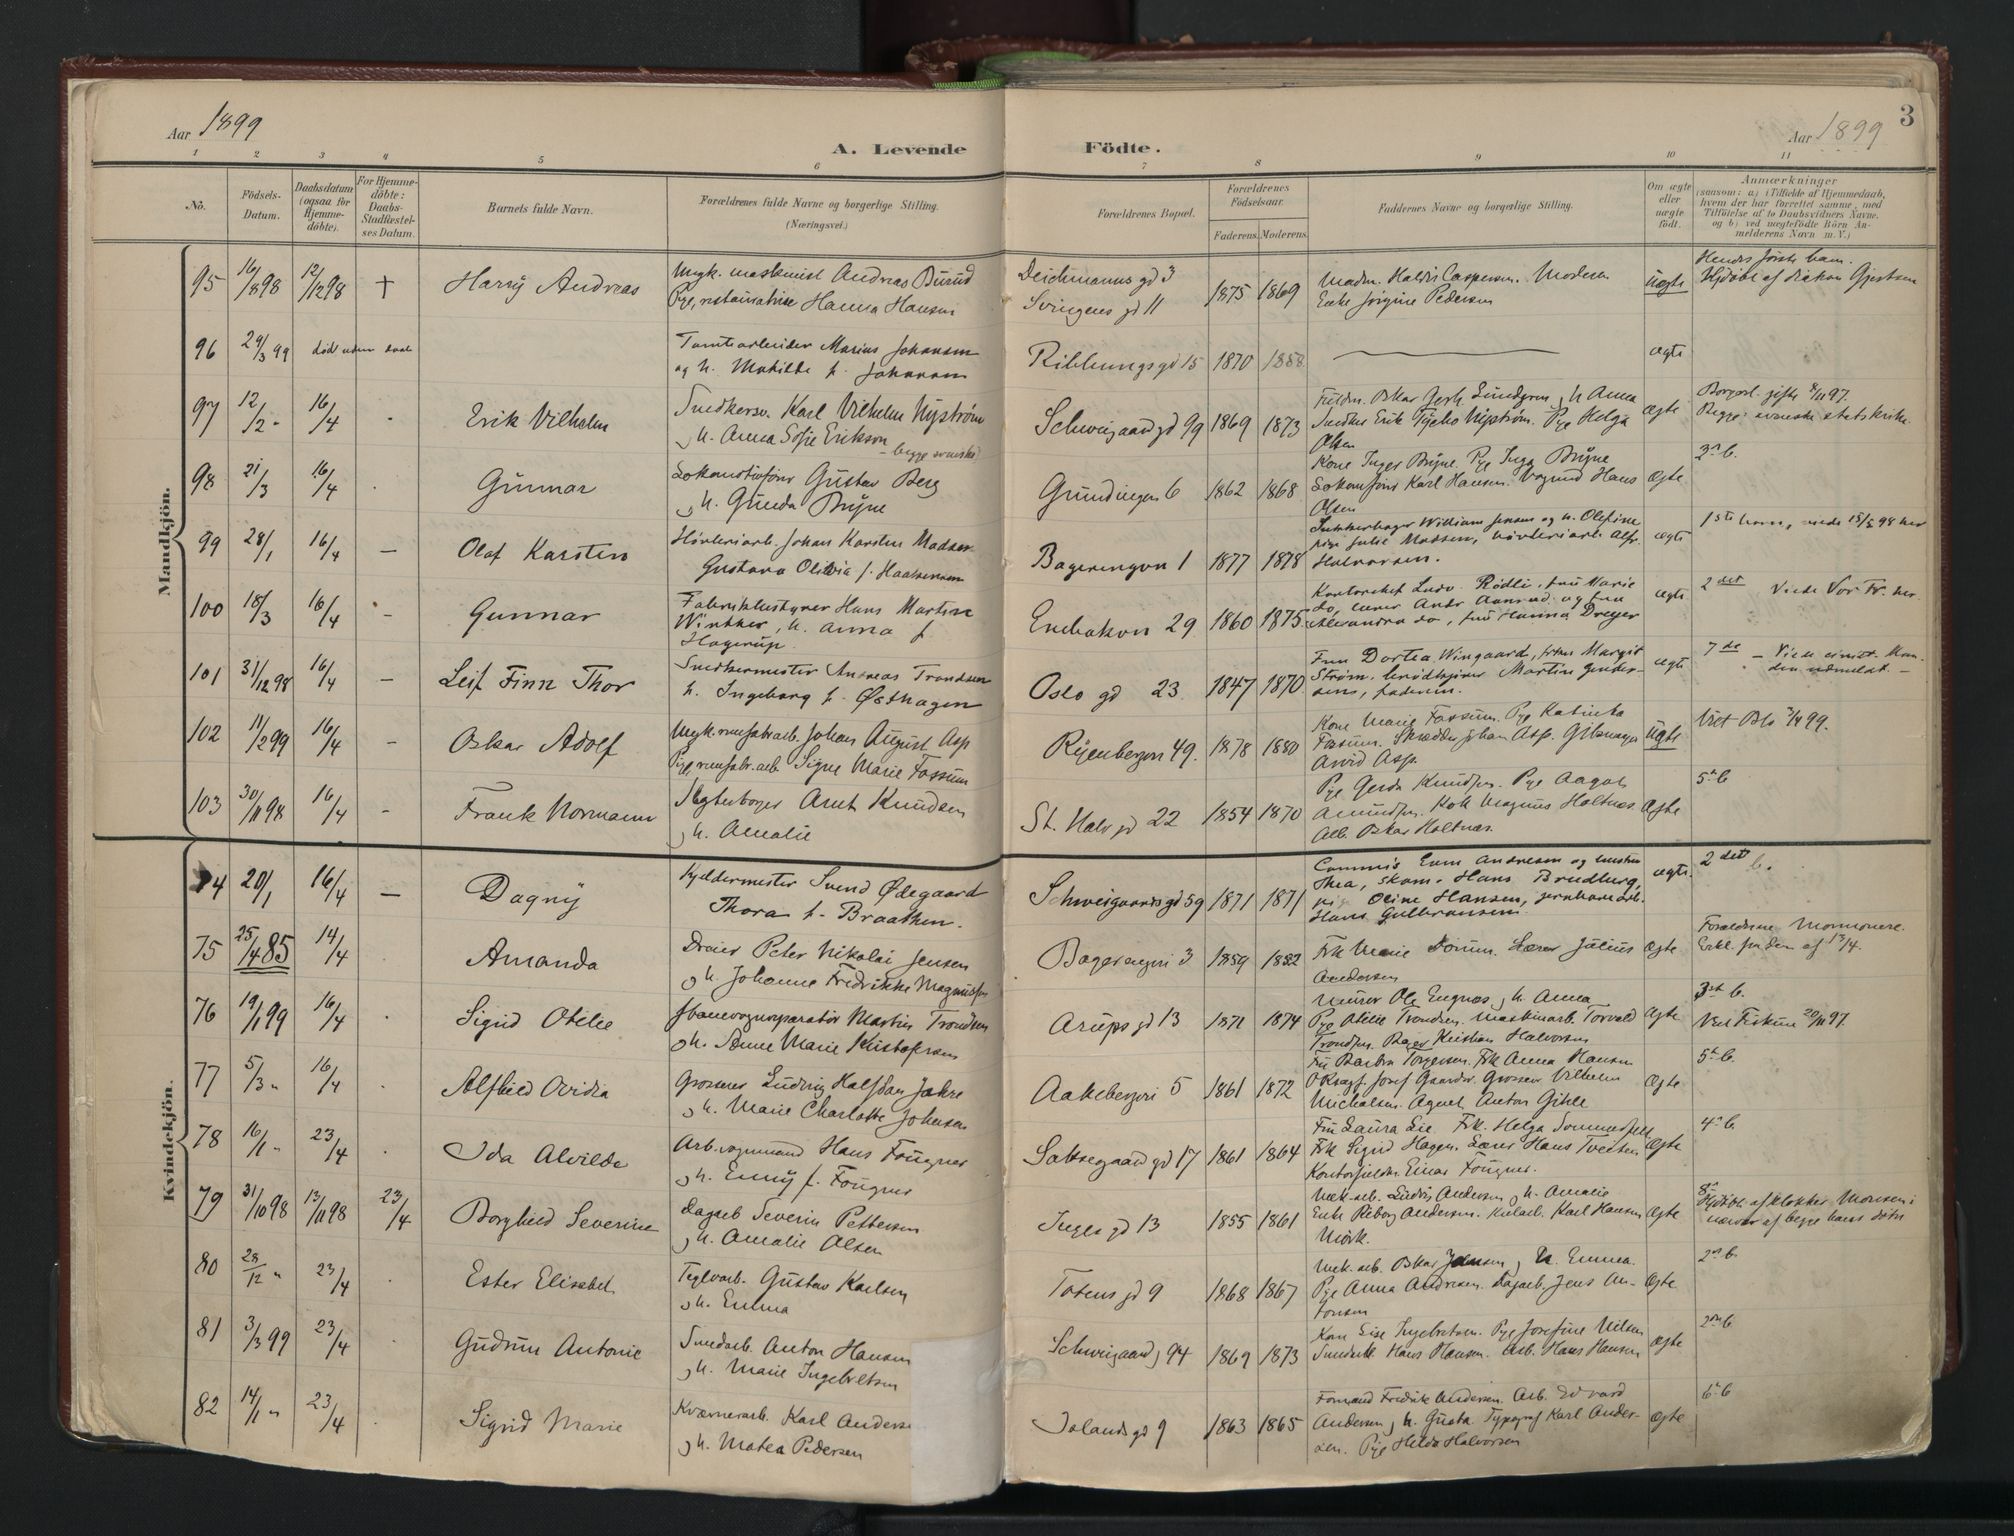 Aar 1899
A. Levende Födte.
Aar 1899
3
1 2 3 4 5 6 7 8 9 10 11
No.
Födsels-Datum.
Daabsdatum (ogsaa for Hjemme-döbte).
For Hjemme-döbte: Daabs-Stadfæstel-ses Datum.
Barnets fulde Navn.
Forældrenes fulde Navne og borgerlige Stilling.
(Næringsvei.)
Forældrenes Bopæl.
Forældrenes Födselsaar.
Faderens. Moderens.
Faddernes Navne og borgerlige Stilling.
Om ægte eller uægte födt.
Anmærkninger
(saasom: a) i Tilfælde af Hjemmedaab, hvem der har forrettet samme, med Tilföielse af to Daabsvidners Navne, og b) ved uægtefödte Börn An-melderens Navn m. V.)
Mandkjön.
95 16/8 98 12/12 98 + Harry Andreas
Ungk. maskinist Andreas Burud
Hanna Hansen
Deichmanns gd 3
Svingens gd 11
1875 1869
Enke Jørgine Pedersen
uægte
Hjdöbt af diakon
96 29/3 99 död uden daab
Tomtearbeider Marius Johansen
og h. Mathilde f. Johansen
Ribbungsgd 15 1870 1858
ægte
97 12/2 " 16/4 Erik Vilhelm
Snedkersv. Karl Vilhelm Nyström
og h. Anna Sofie Erikson
begge svenske
Schweigaardgd 99 1869 1873
Oskar Lundgren, h Anna
Snedker Erik Tycho Nyström. Pge Helga
Olsen
ægte
Borgerl. gifte 4/11 97.
Begge svenske statskirke
98 21/3 16/4 Gunnar
Gustav Berg
og h. Gunda Bryne
Grundingen 6 1862 1868
Kone Inger Bryne. Pge Inga Bryne
Karl Hansen. Vognmd Hans
Olsen
ægte
2n b.
99 28/1 16/4 — Olaf Karsten
Høvleriarb. Johan Karsten Madsen
Gustava Olivia f. Haakensen
Bagerengvn 1 1877 1878
William Jensen og h. Olefine
pige Julie Madsen, høvleriarb. Alfr.
Halvorsen.
ægte
1ste barn, viede 15/5 98 her
100 18/3 16/4 — Gunnar
Fabrikbestyrer Hans Martin
Winther, h. Anna f.
Hagerup.
Enebakvn 29 1860 1875
fru Marie
do, Andr Aanrud og fru
Alexandra do, fru Hanna Dreyer
ægte
2det Viede Vor Fr. her
101 31/12 98 16/4 — Leif Finn Thor
Snedkermester Andreas Trondsen
h. Ingeborg f. Østhagen
Oslo gd 23 1847 1870
Fru Dortea Wingaard, frk Margit
Strøm, brødkjører Martin Gunder-
sen, faderen.
ægte
7de — Viede
den udmeldt —
102 11/2 99 16/4 — Oskar Adolf
Johan August Asp
Signe Marie Fossum
Ryenbergvn 49. 1878 1880
Kone Marie Fossum. Pge Katinka
Fossum. Skrædder Johan Asp. Gibsmager
Arvid Asp.
uægte
Viet Oslo 3/4 99.
103 30/11 98 16/4 — Frank Normann
Arnt Knudsen
og h. Amalie
St. Halv gd 22 1854 1870
Pge Gerda Knudsen. Pge Aagot
Amundsen. Kok Magnus Holtnæs
Arb. Oskar Holtnæs.
ægte
5te b
Kvindekjön.
74 20/1 16/4 — Dagny
Kjeldermester Svend Ødegaard
Thora f. Braathen.
Schweigaardsgd 59 1871 1871
Commis Enm Andresen og hustru
Thea, skom. Hans Brudberg,
pig Oline Hansen, jernbanearb.
Hans Gulbransen
ægte.
2det b.
75 25/4 85 14/4 Amanda
Dreier Peter Nikolai Jensen
og h. Johanne Fredrikke Magnussen
Bagerengvn 3 1859 1852
Frk Marie Dörum. Lærer Julius
Andersen
ægte
Forældrene Mormonere.
Erkl. fra dem af 13/4.
76 19/1 99 16/4 Sigrid Otelie
Martin Trondsen
og h. Anne Marie Kristofersen
Arups gd 13 1871 1874
Murer Ole Engnæs, h. Anna
Pge Otelie Trondsen. Maskinarb. Torvald
Trondsen. Bager Kristian Halvorsen
ægte
3die b.
Viet Fiskum 20/11 97.
77 5/3 " 16/4 Alfhild Ovidia
Grosserer Ludvig Halfdan Jahre
og h. Marie Charlotte Johnsen
Aakebergvei 5 1861 1872
Fru Barbra Torgersen. Frk Anna Hansen
Josef Gaarder. Grosserer Vilhelm
Michalsen. Agent Anton Gihle
ægte
5te b.
78 16/1 " 23/4 Ida Alvilde
Arb. vognmand Hans Fougner
og h. Emmy f. Fougner
Saksegaard gd 17 1861 1864
Fru Laura Lie. Frk. Helga Sommerfelt
Frk Sigrid Hagen. Lærer Hans Tveten
Einar Fougner.
ægte
4de b.
79 31/10 98 13/11 98 23/4 Borghild Severine
Dagarb Severin Pettersen
og h. Amalie Olsen
Inges gd 13 1855 1861
Mek. arb. Ludvig Andersen, h. Amalie
Enke Andersen. Karl Hansen
Mörk.
ægte
8de
Hjdöbt af klokker Monsen i
nærvær af begge
80 28/12 " 23/4 Ester Elisabet
Teglvarb. Gustav Karlsen
og h. Emma
Totens gd 9 1868 1867
Mek. arb. Oskar Jensen, h. Emma.
Pge Anna Andresen. Dagarb. Jens An-
tonsen
ægte
2n b
81 3/3 99 23/4 Gudrun Antonie
Smedarb. Anton Hansen
og h. Marie Ingebretsen
Schweigaard, 94 1869 1873
Kone Lise Ingebretsen. Pge Josefine Nilsen
Hans Hansen. Arb. Hans Hansen
ægte
2n b
82 14/1 " 23/4 Sigrid Marie
Kværnerarb. Karl Anderse
og h. Matea Pedersen
Jolands gd 9 1863 1865
Formand Fredrik Andersen. Arb. Edvard
Andersen, h. Gusta. Typograf Karl Ander-
sen. Pge Helda Halvorsen
ægte
6te b